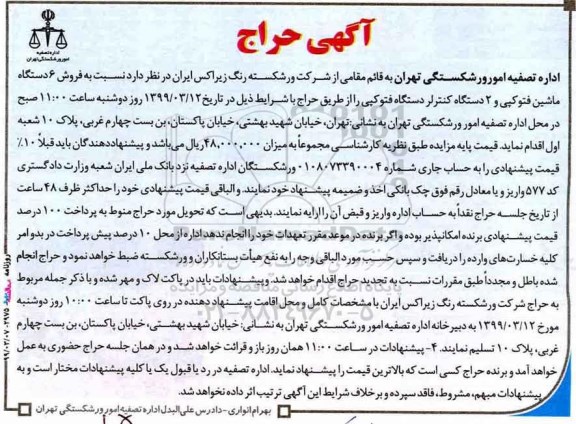 آگهی حراج
اداره تصفیه
امور ورشکستگی تهران
اداره تصفیه امور ورشکستگی تهران به قائم مقامی از شرکت ورشکسته رنگ زیراکس ایران در نظر دارد نسبت به فروش ۶ دستگاه
ماشین فتوکپی و ۲ دستگاه کنترلر دستگاه فتوکپی را از طریق حراج با شرایط ذیل در تاریخ ۱۳۹۹/۰۳/۱۲ روز دوشنبه ساعت ۱۱:۰۰ صبح
در محل اداره تصفیه امور ورشکستگی تهران به نشانی: تهران، خیابان شهید بهشتی، خیابان پاکستان، بن بست چهارم غربی، پلاک ۱۰ شعبه
اول اقدام نماید. قیمت پایه مزایده طبق نظریه کارشناسی مجموعاً به میزان ۴۸،۰۰۰،۰۰۰ ریال می باشد و پیشنهاددهندگان باید قبلاً ۱۰٪
قیمت پیشنهادی را به حساب جاری شماره ۰۱۰۸۰۷۳۳۹۰۰۰۴ ورشکستگان اداره تصفیه نزد بانک ملی ایران شعبه وزارت دادگستری
کد ۵۷۷ واریز و یا معادل رقم فوق چک بانکی اخذ و ضمیمه پیشنهاد خود نمایند. والباقی قیمت پیشنهادی خود را حداکثر ظرف ۴۸ ساعت
از تاریخ جلسه حراج نقداً به حساب اداره واریز و قبض آن را ارایه نمایند. بدیهی است که تحویل مورد حراج منوط به پرداخت ۱۰۰ درصد
قیمت پیشنهادی برنده امکانپذیر بوده و اگر برنده در موعد مقرر تعهدات خود را انجام ندهد اداره از محل ۱۰ درصد پیش پرداخت در بدو امر
کلیه خسارت‌های وارده را دریافت و سپس حسب مورد الباقی وجه را به نفع هیأت بستانکاران و ورشکسته ضبط خواهد نمود و حراج انجام
شده باطل و مجدداً طبق مقررات نسبت به تجدید حراج اقدام خواهد شد. و پیشنهادات باید در پاکت لاک و مهر شده و با ذکر جمله مربوط
به حراج شرکت ورشکسته رنگ زیراکس ایران با مشخصات کامل و محل اقامت پیشنهاد دهنده در روی پاکت تا ساعت ۱۰:۰۰ روز دوشنبه
مورخ ۱۳۹۹/۰۳/۱۲ به دبیرخانه اداره تصفیه امور ورشکستگی تهران به نشانی: خیابان شهید بهشتی، خیابان پاکستان، بن بست چهارم
غربی، پلاک ۱۰ تسلیم نمایند. ۴- پیشنهادات در ساعت ۱۱:۰۰ همان روز باز و قرائت خواهد شد و در همان جلسه حراج حضوری به عمل
خواهد آمد و برنده حراج کسی است که بالاترین قیمت را پیشنهاد نماید. اداره تصفیه در رد یا قبول یک یا کلیه پیشنهادات مختار است و به
پیشنهادات مبهم، مشروط، فاقد سپرده و برخلاف شرایط این آگهی ترتیب اثر داده نخواهد شد.
بهرام انواری - دادرس علی البدل اداره تصفیه امور ورشکستگی تهران
۰۲۱-۸۸۳۴۹۶۷۰-۵
روزنامه